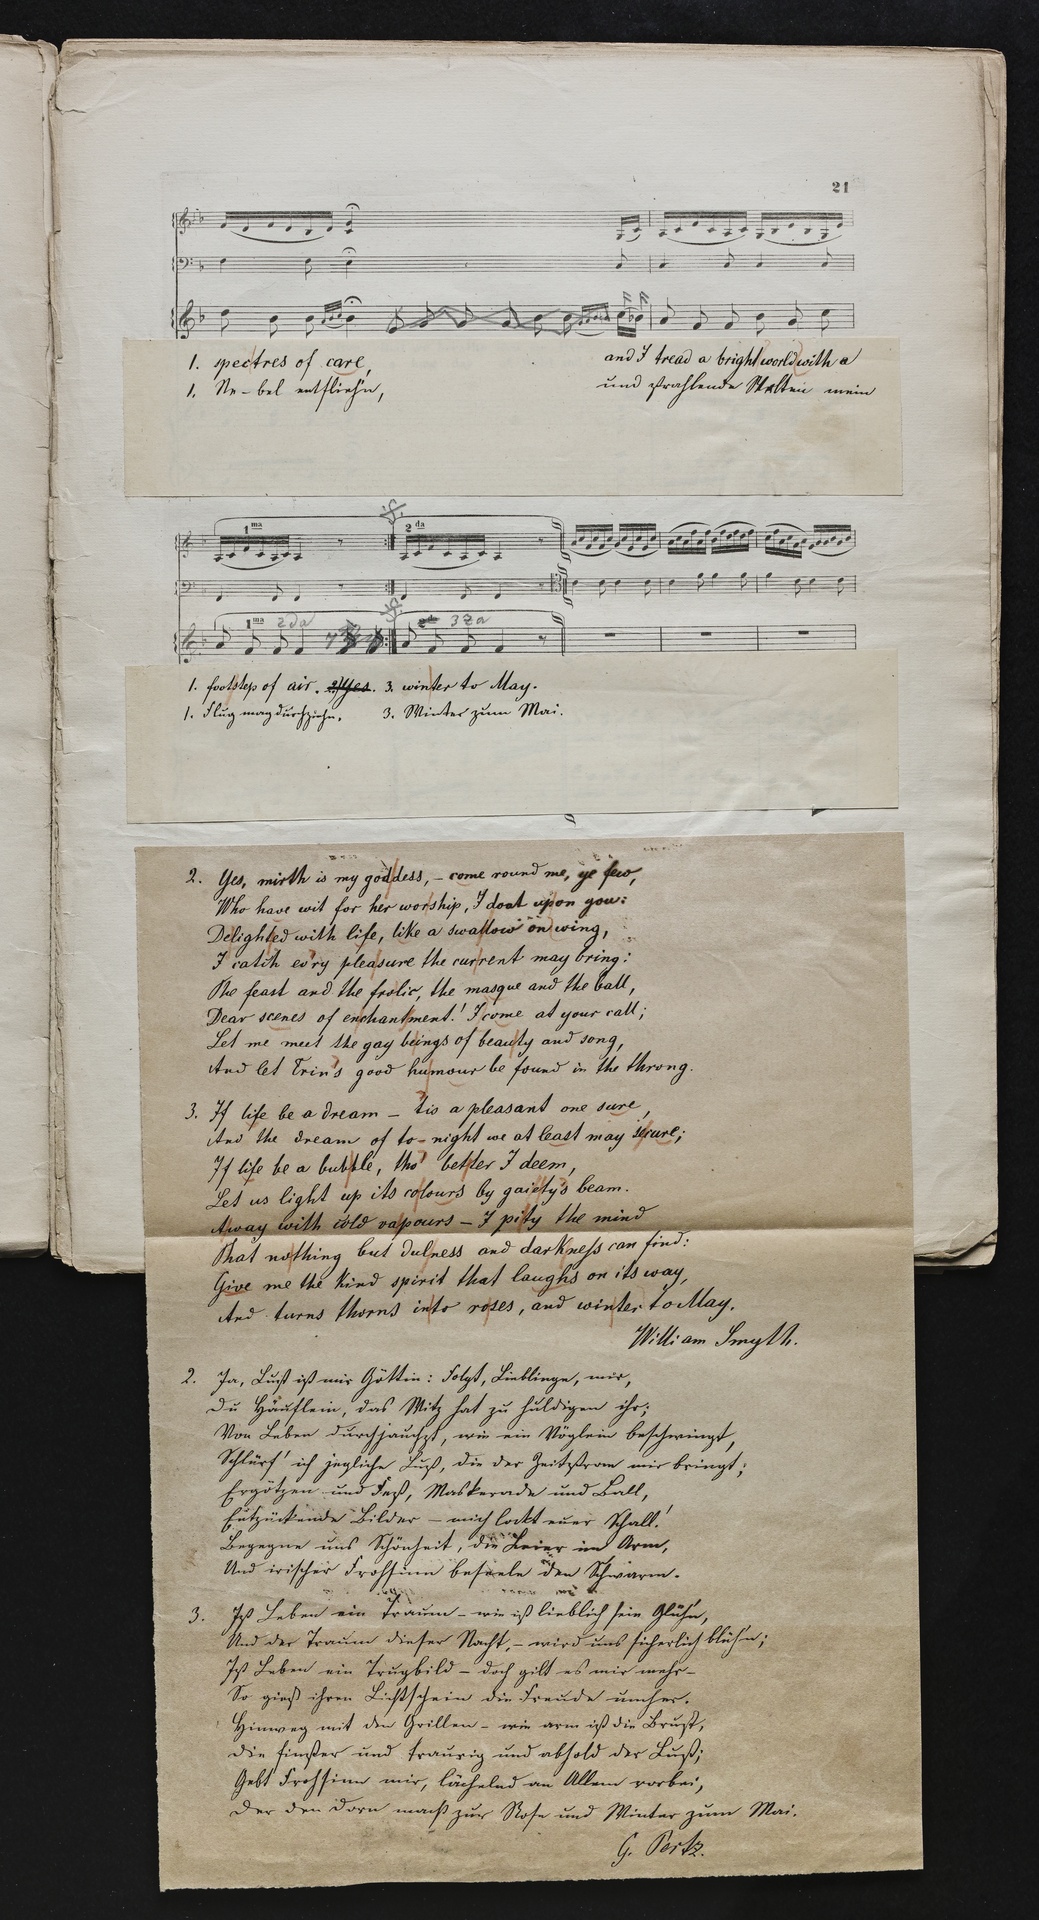 21
1. spectres of care, and I tread a bright world with a
1. Ne-bel entflieh'n, und strahlende Welten mein
1ma 2da
1ma 2da 2da 3za
1. footstep of air. 2) Yes. 3. winter to May.
1. Flug mag durchziehn. 3. Winter zum Mai.
2. Yes, mirth is my goddess, – come round me, ye few,
Who have wit for her worship, I doat upon you:
Delighted with life, like a swallow on wing,
I catch ev'ry pleasure the current may bring:
The feast and the frolic, the masque and the ball,
Dear scenes of enchantment! I come at your call;
Let me meet the gay beings of beauty and song,
And let Erin's good humour be found in the throng.
3. If life be a dream – 'tis a pleasant one sure,
And the dream of to-night we at least may secure;
If life be a bubble, tho' better I deem,
Let us light up its colours by gaiety's beam.
Away with cold vapours – I pity the mind
That nothing but dulness and darkness can find:
Give me the kind spirit that laughs on its way,
And turns thorns into roses, and winter to May.
William Smyth.
2. Ja, Lust ist mir Göttin: folgt, Lieblinge, mir,
Du Häuflein, das Witz hat zu huldigen ihr;
Von Leben durchjauchzt, wie ein Vöglein beschwingt,
Schlürf' ich jegliche Lust, die der Zeitstrom mir bringt;
Ergötzen und Fest, Maskerade und Ball,
Entzückende Bilder – mich lockt euer Schall!
Begegne uns Schönheit, die Leier im Arm,
Und irischer Frohsinn beseele den Schwarm.
3. Ist Leben ein Traum – wie ist lieblich sein Glühn,
Und der Traum dieser Nacht, – wird uns sicherlich blühn;
Ist Leben ein Trugbild – doch gilt es mir mehr –
So giest ihren Lichtschein die Freude umher.
Hinweg mit den Grillen – wie arm ist die Brust,
Die finster und traurig und abhold der Lust;
Gebt Frohsinn mir, lächelnd an Allem vorbei,
Der den Dorn macht zur Rose und Winter zum Mai.
G. Pertz.